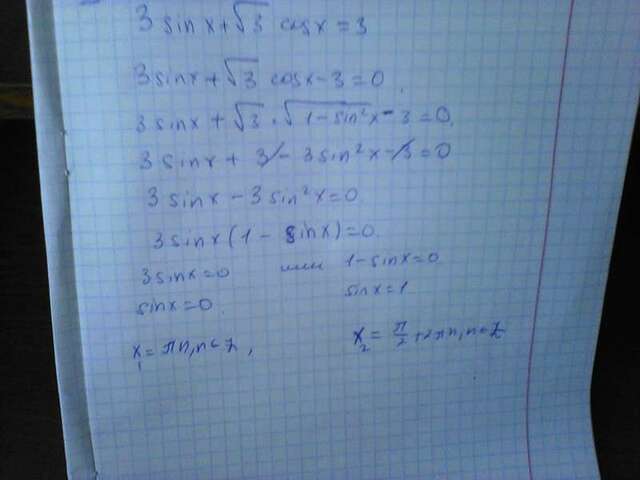 3 sin x + √3 cos x = 3
3 sin x + √3 cos x - 3 = 0.
3 sin x + √3 · √(1 - sin²x) - 3 = 0.
3 sin x + 3 - 3 sin²x - 3 = 0
3 sin x - 3 sin²x = 0.
3 sin x (1 - sin x) = 0.
3 sin x = 0 или 1 - sin x = 0
sin x = 0. sin x = 1
x₁ = πn, n ∈ Z, x₂ = π/2 + 2πn, n ∈ Z